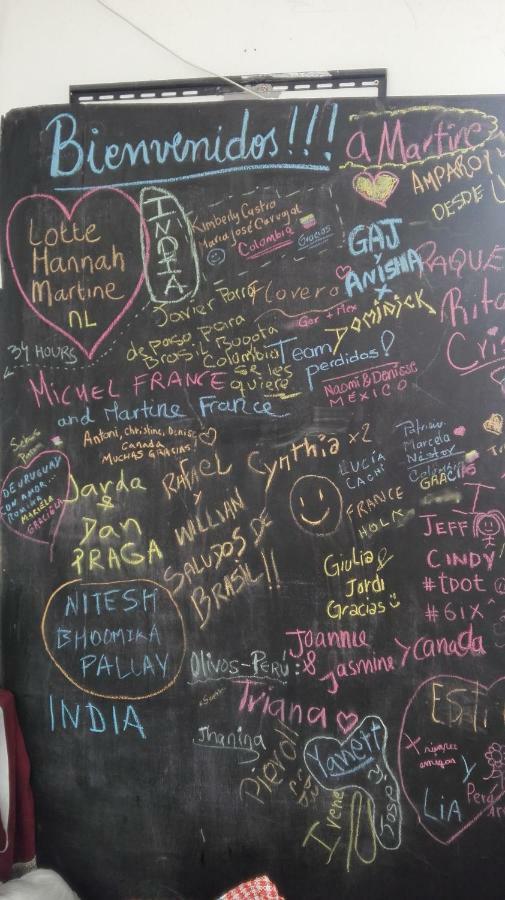 Bienvenidos!!!
a Martine
AMPARO
DESDE
Lotte
Hannah
Martine
NL
INDIA
Kimberly Castro
Maria José Carvajal
Colombia Gracias
GAJ
Y
ANISHA
Javier Parra
Flovero
Gar + Flex
DOMINICK
de paso para
Brasil Bogota
Colombia
se les
quiere
Team
perdidos!
34 HOURS
MICHEL FRANCE
and Martine France
Naomi & Denisse
MEXICO
Antoni, Christine, Denise
Canada
MUCHAS GRACIAS!
DE URUGUAY
CON AMOR...
ROMINA
MARIELA
GRACIELA
Jarda
&
Dan
PRAGA
RAFAEL
Y
WILLIAN
SALUDOS DE
BRASIL!!
Cynthia x2
LUCÍA
CACHI
FRANCE
HOLA
Patricia
Marcela
Néstor
Colombia
GRACIAS
I
JEFF
CINDY
#tDOT
#6IX
Giulia &
Jordi
Gracias
NITESH
BHOOMIKA
PALLAV
INDIA
Olivos-Perú:
Joannie
&
Jasmine Y Canada
Triana
Jhanina
Pierol
Yanett
Jose
Irene
Y
LiA
Perú